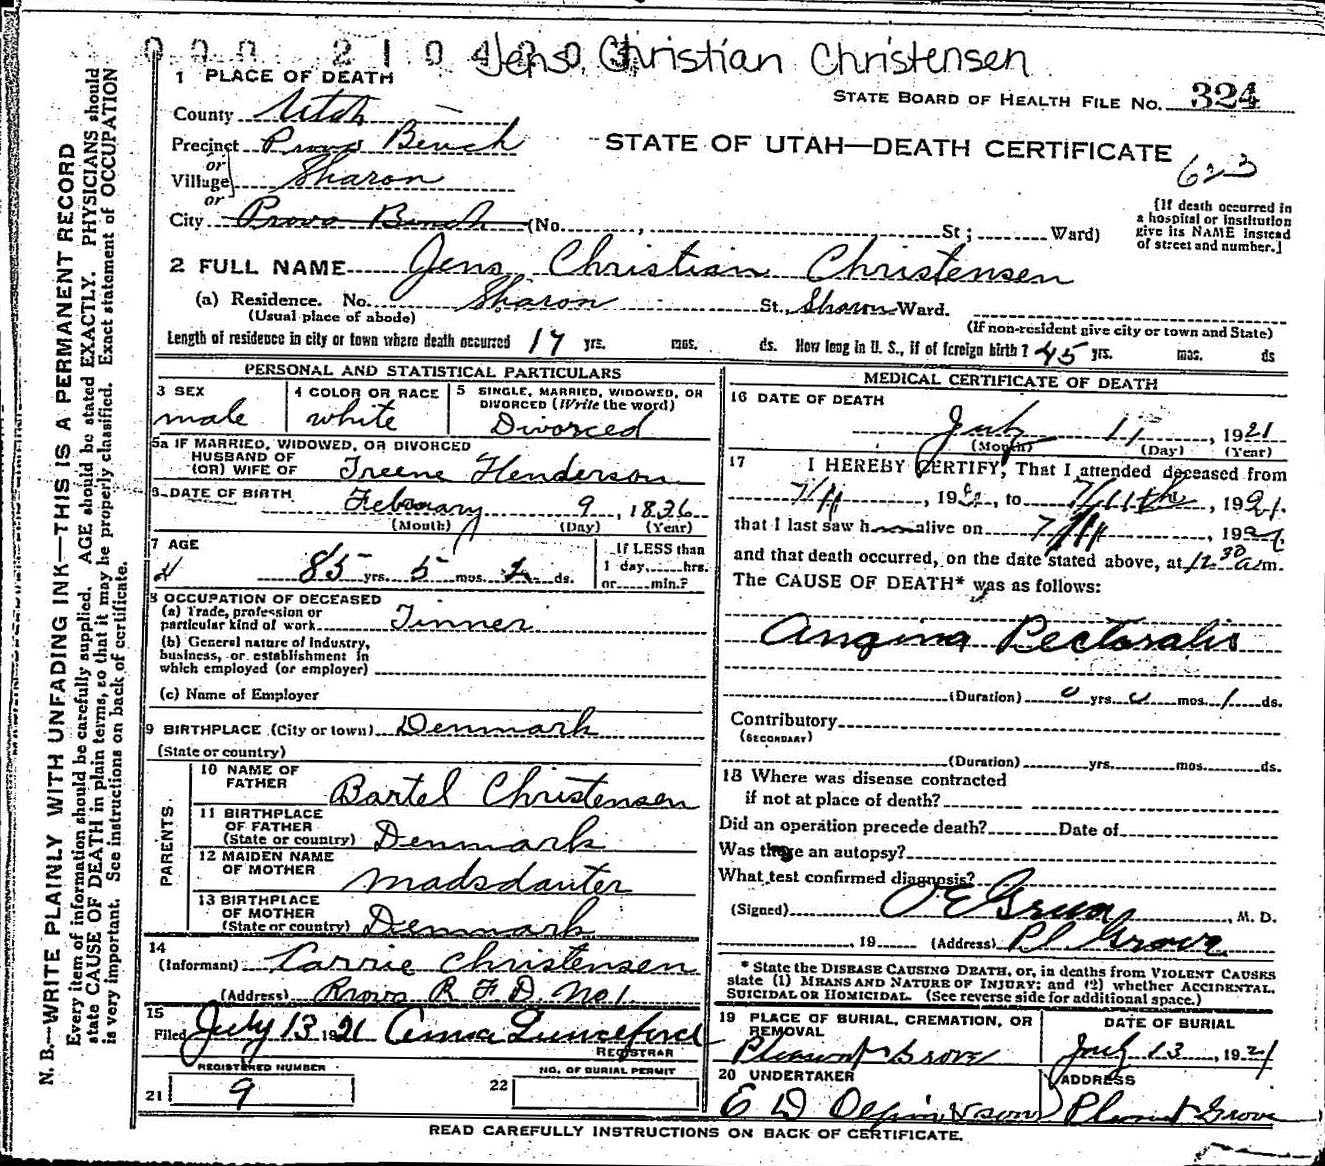 000 210 4203
Jens Christian Christensen
1 PLACE OF DEATH
STATE BOARD OF HEALTH FILE No. 324
County Utah
Precinct Provo Bench
STATE OF UTAH—DEATH CERTIFICATE
623
or
Village Sharon
or
City Provo Bench (No. , St; Ward)
[If death occurred in
a hospital or institution
give its NAME instead
of street and number.]
2 FULL NAME Jens Christian Christensen
(a) Residence. No. Sharon St., Sharon Ward.
(Usual place of abode)
(If non-resident give city or town and State)
Length of residence in city or town where death occurred 17 yrs. mos. ds. How long in U. S., if of foreign birth? 45 yrs. mos. ds
PERSONAL AND STATISTICAL PARTICULARS
3 SEX
male
4 COLOR OR RACE
white
5 SINGLE, MARRIED, WIDOWED, OR
DIVORCED (Write the word)
Divorced
5a IF MARRIED, WIDOWED, OR DIVORCED
HUSBAND OF
(OR) WIFE OF Treene Henderson
6 DATE OF BIRTH February 9, 1836
(Month) (Day) (Year)
7 AGE
85 yrs. 5 mos. 2 ds.
If LESS than
1 day, hrs.
or min.?
8 OCCUPATION OF DECEASED
(a) Trade, profession or
particular kind of work Tinner
(b) General nature of Industry,
business, or establishment in
which employed (or employer)
(c) Name of Employer
9 BIRTHPLACE (City or town) Denmark
(State or country)
PARENTS
10 NAME OF
FATHER Bartel Christensen
11 BIRTHPLACE
OF FATHER
(State or country) Denmark
12 MAIDEN NAME
OF MOTHER Madsdauter
13 BIRTHPLACE
OF MOTHER
(State or country) Denmark
14
(Informant) Carrie Christensen
(Address) Provo R F D. No 1.
15
Filed July 13 1921 Anna Lunceford
REGISTRAR
REGISTERED NUMBER
21 9
NO. OF BURIAL PERMIT
22
MEDICAL CERTIFICATE OF DEATH
16 DATE OF DEATH
July 11, 1921
(Month) (Day) (Year)
17 I HEREBY CERTIFY, That I attended deceased from
7/11, 19 , to 7/11th, 1921.
that I last saw h alive on 7/11, 1921.
and that death occurred, on the date stated above, at 12 30 a m.
The CAUSE OF DEATH* was as follows:
Angina Pectoralis
(Duration) 0 yrs. 0 mos. 1 ds.
Contributory
(SECONDARY)
(Duration) yrs. mos. ds.
18 Where was disease contracted
if not at place of death?
Did an operation precede death? Date of
Was there an autopsy?
What test confirmed diagnosis?
(Signed) O E Grua, M. D.
, 19 (Address) Pl Grove
* State the DISEASE CAUSING DEATH, or, in deaths from VIOLENT CAUSES
state (1) MEANS AND NATURE OF INJURY; and (2) whether ACCIDENTAL,
SUICIDAL OR HOMICIDAL. (See reverse side for additional space.)
19 PLACE OF BURIAL, CREMATION, OR
REMOVAL
Pleasant Grove
DATE OF BURIAL
July 13, 1921
20 UNDERTAKER
E D Olpin & sons
ADDRESS
Pleasant Grove
READ CAREFULLY INSTRUCTIONS ON BACK OF CERTIFICATE.
N. B.—WRITE PLAINLY WITH UNFADING INK—THIS IS A PERMANENT RECORD
Every item of information should be carefully supplied. AGE should be stated EXACTLY. PHYSICIANS should
state CAUSE OF DEATH in plain terms, so that it may be properly classified. Exact statement of OCCUPATION
is very important. See instructions on back of certificate.